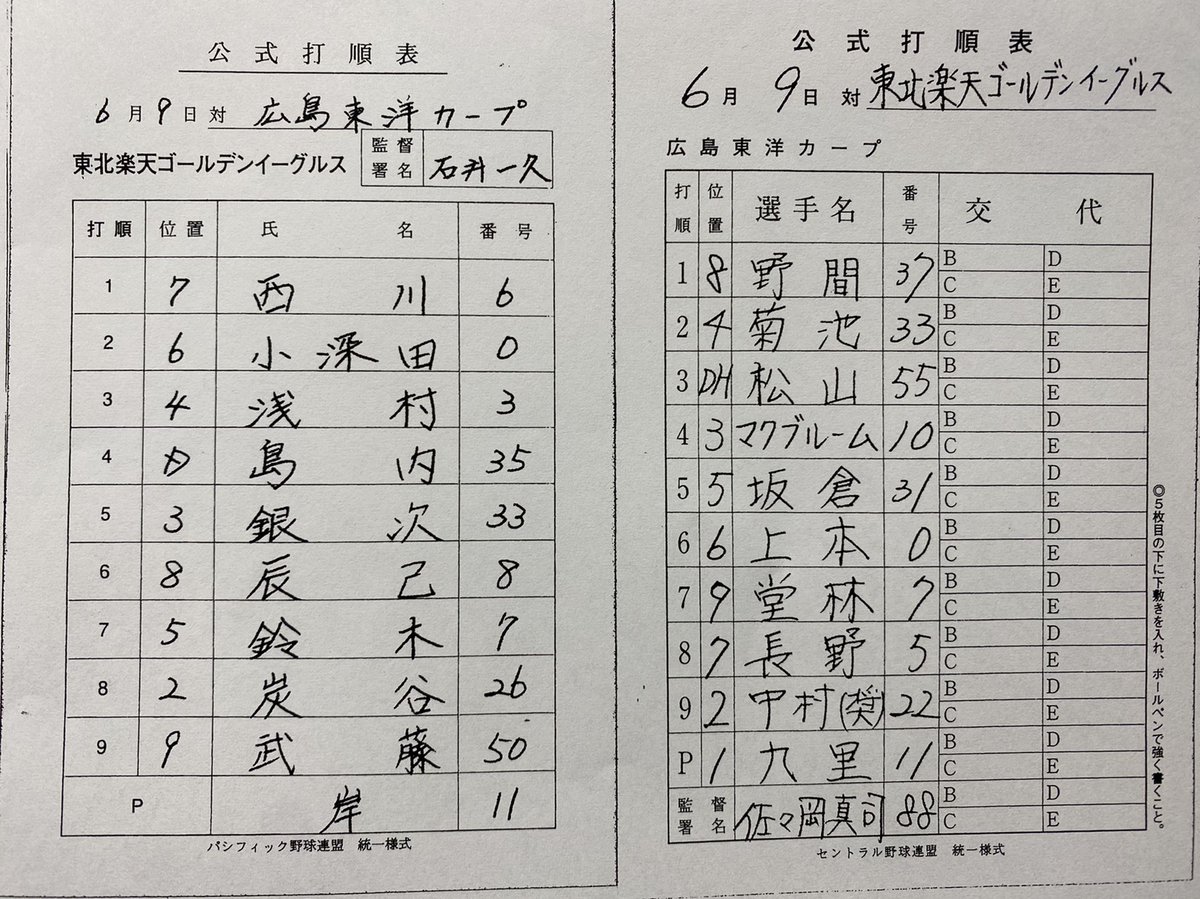 公式打順表
6月9日対 広島東洋カープ
東北楽天ゴールデンイーグルス 監督署名 石井一久
打順 位置 氏名 番号
1 7 西川 6
2 6 小深田 0
3 4 浅村 3
4 D 島内 35
5 3 銀次 33
6 8 辰己 8
7 5 鈴木 7
8 2 炭谷 26
9 9 武藤 50
P 岸 11
パシフィック野球連盟 統一様式
公式打順表
6月9日対東北楽天ゴールデンイーグルス
広島東洋カープ
打順 位置 選手名 番号 交代
1 8 野間 37 B D C E
2 4 菊池 33 B D C E
3 DH 松山 55 B D C E
4 3 マクブルーム 10 B D C E
5 5 坂倉 31 B D C E
6 6 上本 0 B D C E
7 9 堂林 7 B D C E
8 7 長野 5 B D C E
9 2 中村(奨) 22 B D C E
P 1 九里 11 B D C E
監督署名 佐々岡真司 88 B D C E
セントラル野球連盟 統一様式
◎5枚目の下に下敷きを入れ、ボールペンで強く書くこと。